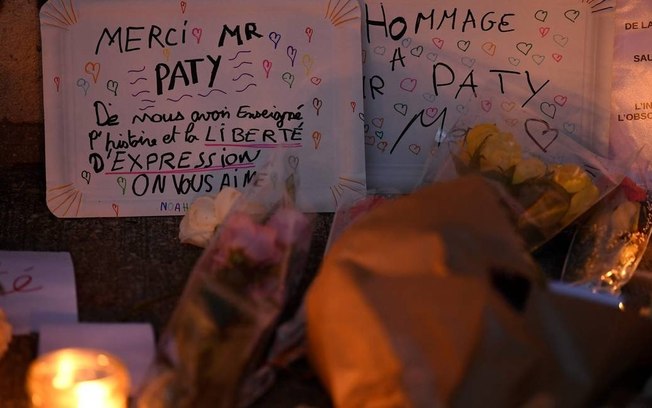 MERCI MR
PATY
De nous avoir Enseigné
l'histoire et la LIBERTÉ
D'EXPRESSION
ON VOUS AIME
NOAH
HOMMAGE
A
MR PATY
M
DE LA
SAU
L'IN
L'OBSC
té